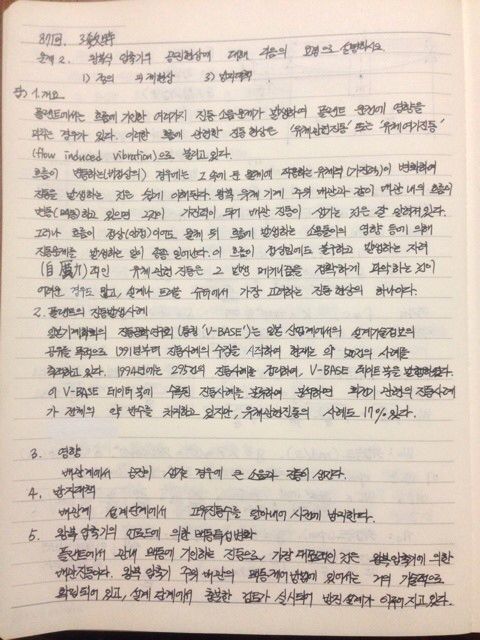 87회. 3교시
문제 2. 왕복식 압축기의 공진현상에 대해 다음의 요령으로 설명하시오.
1) 정의 2) 현상 3) 방지대책
답) 1. 개요
플랜트에서는 흐름에 기인한 여러가지 진동 소음문제가 발생하여 플랜트 운전에 영향을
끼치는 경우가 있다. 이러한 흐름에 관련한 진동현상은 '유체관련진동' 또는 '유체여기진동'
(flow induced vibration)으로 불리고 있다.
흐름이 변동하는(비정상의) 경우에는 그 속에 둔 물체에 작용하는 유체력(가진력)이 변화하여
진동을 발생하는 것은 쉽게 이해된다. 왕복 유체 기계 주위 배관과 같이 배관 내의 흐름이
변동(맥동)하고 있으면 그것이 가진력이 되어 배관 진동이 생기는 것은 잘 알려져 있다.
그러나 흐름이 정상(안정)이어도 물체 뒤 흐름에 발생하는 소용돌이의 영향 등에 의해
진동문제를 발생하는 일이 종종 일어난다. 이 흐름이 정상임에도 불구하고 발생하는 자려
(自勵)적인 유체관련진동은 그 발생 메커니즘을 정확하게 파악하는 것이
어려운 경우도 많고, 설계나 트러블 슈팅에서 가장 고려하는 진동현상의 하나이다.
2. 플랜트의 진동발생사례
일본기계학회의 진동공학연구회(통칭 'V-BASE')는 일본 산업계에서의 설계기술정보의
공유를 목적으로 1991년부터 진동사례의 수집을 시작하여 현재는 약 500건의 사례를
축적하고 있다. 1994년에는 275건의 진동사례를 정리하여, V-BASE 데이터 북을 발행하였다.
이 V-BASE 데이터 북에 수록된 진동사례를 분류하여 분석하면 회전기 관련의 진동사례
가 전체의 약 반수를 차지하고 있지만, 유체관련진동의 사례도 17% 있다.
3. 영향
배관계에서 공진이 생기는 경우에 큰 소음과 진동이 생긴다.
4. 방지대책
배관계 설계단계에서 고유진동수를 알아내어 사전에 방지한다.
5. 왕복 압축기의 언로드에 의한 맥동특성변화
플랜트에서 관내 맥동에 기인하는 진동으로 가장 대표적인 것은 왕복압축기에 의한
배관진동이다. 왕복 압축기 주위 배관의 맥동제어방법에 있어서는 거의 기술적으로
확립되어 있고, 설계 단계에서 충분한 검토가 실시되어 방진설계가 이루어지고 있다.